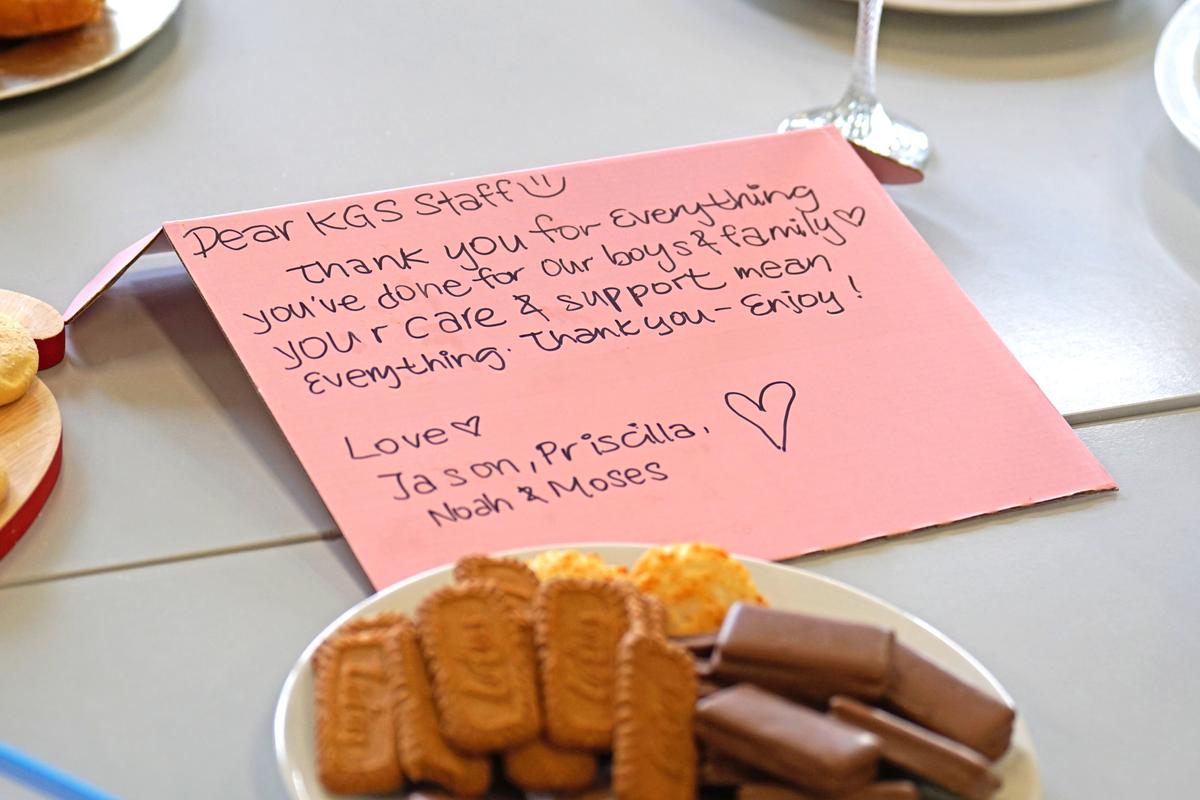 Dear KGS Staff
Thank you for Everything
you've done for our boys & family
your care & support mean
Everything. Thank you - Enjoy!
Love
Jason, Priscilla,
Noah & Moses
Lotus